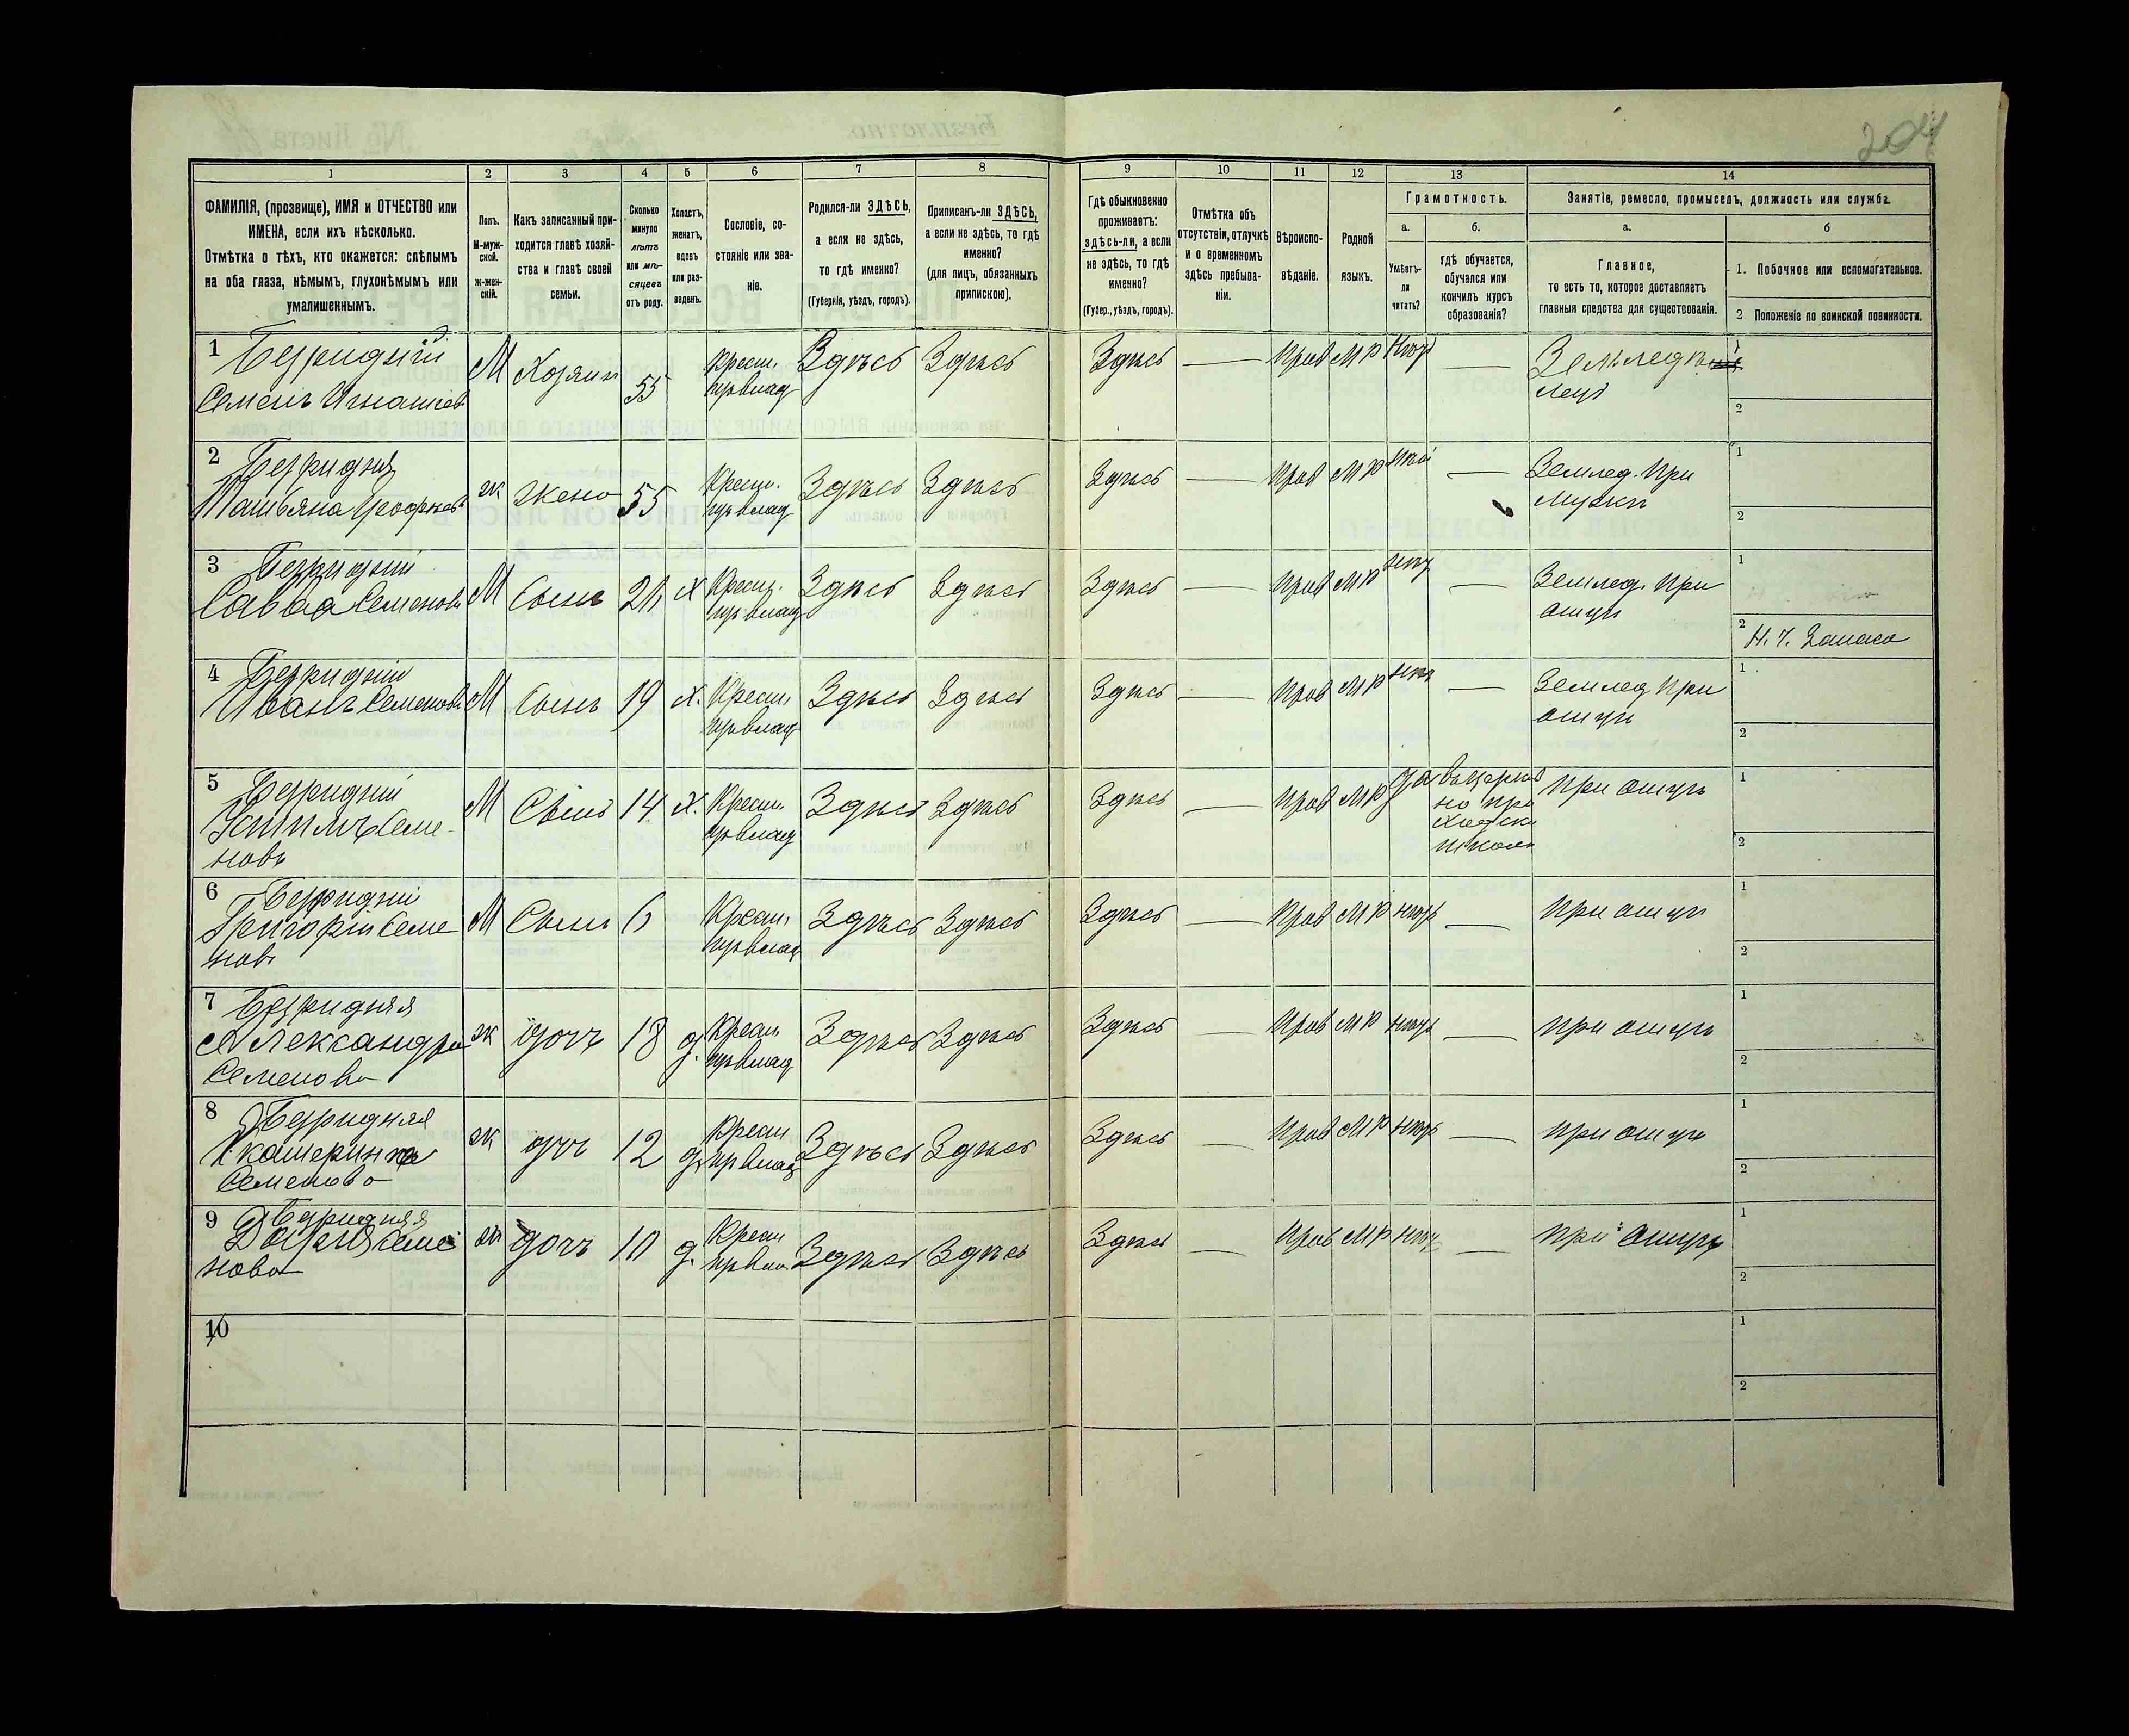 204
1 2 3 4 5 6 7 8 9 10 11 12 13 14
ФАМИЛІЯ, (прозвище), ИМЯ и ОТЧЕСТВО или
ИМЕНА, если ихъ нѣсколько.
Отмѣтка о тѣхъ, кто окажется: слѣпымъ
на оба глаза, нѣмымъ, глухонѣмымъ или
умалишеннымъ.
Полъ.
М-муж-
ской.
ж-жен-
скій.
Какъ записанный при-
ходится главѣ хозяй-
ства и главѣ своей
семьи.
Сколько
минуло
лѣтъ
или мѣ-
сяцевъ
отъ роду.
Холостъ,
женатъ,
вдовъ
или раз-
веденъ.
Сословіе, со-
стояніе или зва-
ніе.
Родился-ли ЗДѢСЬ,
а если не здѣсь,
то гдѣ именно?
(Губернія, уѣздъ, городъ).
Приписанъ-ли ЗДѢСЬ,
а если не здѣсь, то гдѣ
именно?
(для лицъ, обязанныхъ
припискою).
Гдѣ обыкновенно
проживаетъ:
здѣсь-ли, а если
не здѣсь, то гдѣ
именно?
(Губер., уѣздъ, городъ).
Отмѣтка объ
отсутствіи, отлучкѣ
и о временномъ
здѣсь пребыва-
ніи.
Вѣроиспо-
вѣданіе.
Родной
языкъ.
Грамотность.
а.
Умѣетъ-
ли
читать?
б.
гдѣ обучается,
обучался или
кончилъ курсъ
образованія?
Занятіе, ремесло, промыселъ, должность или служба.
а.
Главное,
то есть то, которое доставляетъ
главныя средства для существованія.
б
1. Побочное или вспомогательное.
2. Положеніе по воинской повинности.
1 Безридный
Семенъ Игнатіев
М Хозяин 55 Крест. Здѣсь Здѣсь Здѣсь — Прав М Р — Земледѣ
2 Безридняя
Татьяна
ж жена 55 Крест. Здѣсь Здѣсь Здѣсь — Прав М Р — Землед. При
мужи
3 Безридный
Савва Семеновъ
М Сынъ Х Крест. Здѣсь Здѣсь Здѣсь — Прав М Р — Землед. При
отцѣ
2 Н. Ч. Запаса
4 Безридный
Иванъ Семеновъ
М Сынъ 19 Х. Крест. Здѣсь Здѣсь Здѣсь — Прав М Р — Землед При
отцѣ
5 Безридный
Семе-
новъ
М Сынъ 14 Х. Крест. Здѣсь Здѣсь Здѣсь — Прав М Р да въ церков
но при
ходск
школѣ
При отцѣ
6 Безридный
Григорій Семе
нов
М Сынъ 6 Крест. Здѣсь Здѣсь Здѣсь — Прав М Р — При отцѣ
7 Безридняя
Александра
Семенова
ж дочь 18 д. Крест. Здѣсь Здѣсь Здѣсь — Прав М Р — При отцѣ
8 Безридняя
Екатерина
Семенова
ж доч 12 д. Крест Здѣсь Здѣсь Здѣсь — Прав М Р — При отцѣ
9 Безридняя
Семе
нова
ж дочь 10 д. Крест Здѣсь Здѣсь Здѣсь — Прав М Р — При отцѣ
10